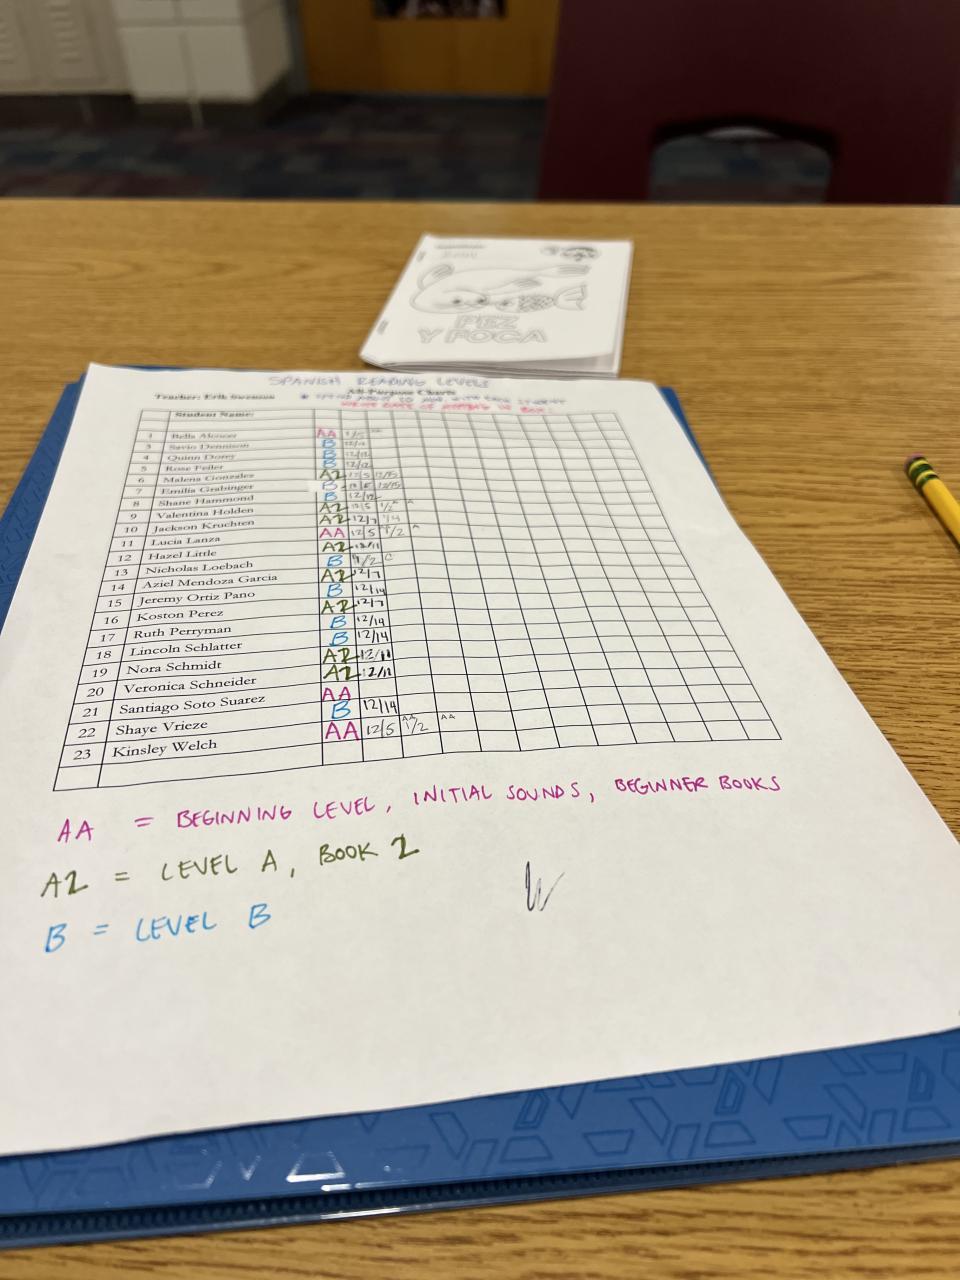 PEZ
Y FOCA
SPANISH READING LEVELS
All-Purpose Charts
Teacher: Erik Swenson
WRITE DATE OF MEETING IN BOX!
Student Name:
1 Bella AA 1/5
3 Savio Dennison B 12/12
4 Quinn B 12/12
5 Rose Feiler B 12/12
6 Malena Gonzalez A2 12/5 12/15
7 Emilia Grabinger B 12/5 12/15
8 Shane Hammond B 12/12
9 Valentina Holden A2 12/5 1/2 A A
10 Jackson Kruchten A2 12/7 1/4
11 Lucia Lanza AA 12/5 1/2 A
12 Hazel Little A2 12/11
13 Nicholas Loebach B 1/2 C
14 Aziel Mendoza Garcia A2 12/7
15 Jeremy Ortiz Pano B 12/14
16 Koston Perez A2 12/7
17 Ruth Perryman B 12/14
18 Lincoln Schlatter B 12/14
19 Nora Schmidt A2 12/11
20 Veronica Schneider A2 12/11
21 Santiago Soto Suarez AA
22 Shaye Vrieze B 12/14
23 Kinsley Welch AA 12/5 AA 1/2 AA
AA = BEGINNING LEVEL, INITIAL SOUNDS, BEGINNER BOOKS
A2 = LEVEL A, BOOK 2
B = LEVEL B